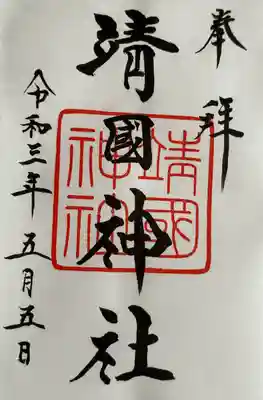 奉拝
靖國神社
靖國
神社
令和三年 五月五日